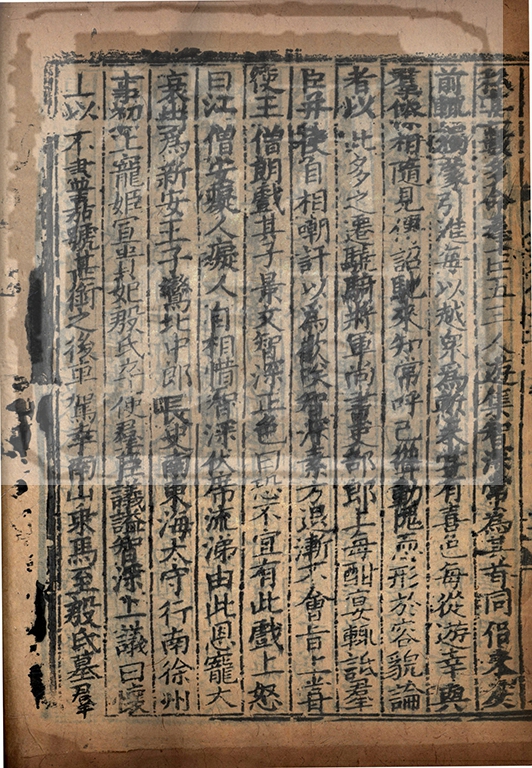 私甚數多命羣臣五三人遊集智深常為其首同侶未及
前輒獨蒙引進每以越衆為慚未嘗有喜色每從游幸與
羣僚相隨見傳詔馳來知常呼己聳動愧恧形於容貌論
者以此多之遷驍騎將軍尚書吏部郎上每酣宴輒詬羣
臣并使自相嘲訐以為歡笑智深素方退漸不會旨上甞
使王僧朗戱其子景文智深正色曰恐不宜有此戱上怒
曰江僧安癡人癡人自相惜智深伏席流涕由此恩寵大
衰出為新安王子鸞北中郎長史南東海太守行南徐州
事初上寵姬宣貴妃殷氏卒使羣臣議謚智深上議曰懷
上以不盡嘉號甚銜之後車駕幸南山乘馬至殷氏墓羣